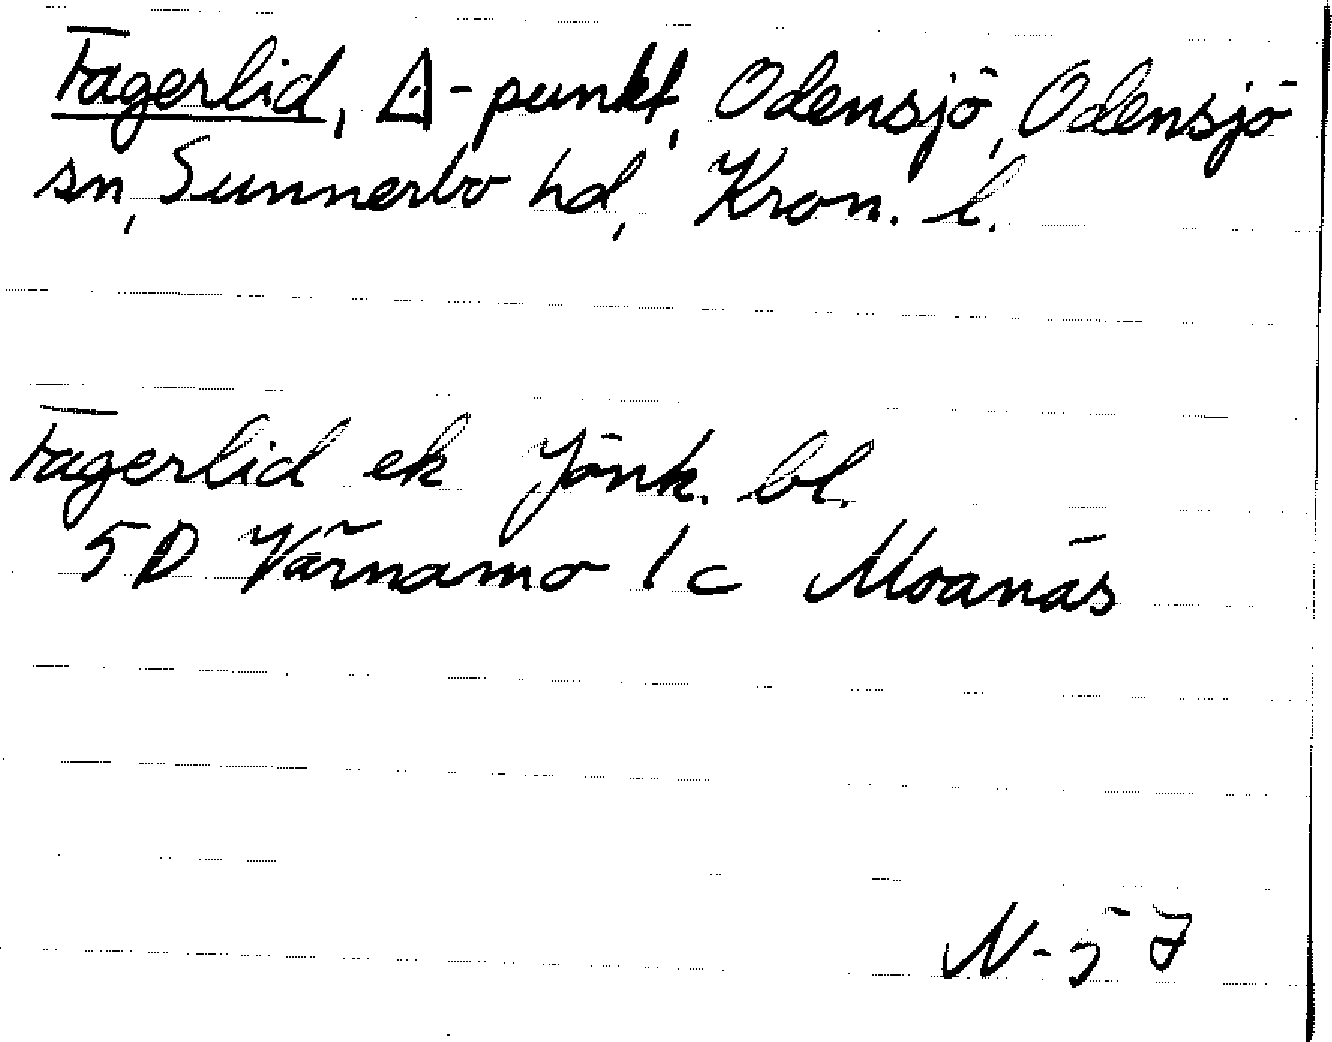 Fagerlid, △-punkt, Odensjö, Odensjö
sn, Sunnerbo hd, Kron. l.
Fagerlid ek Jönk. bl.
5D Värnamo 1c Moanäs